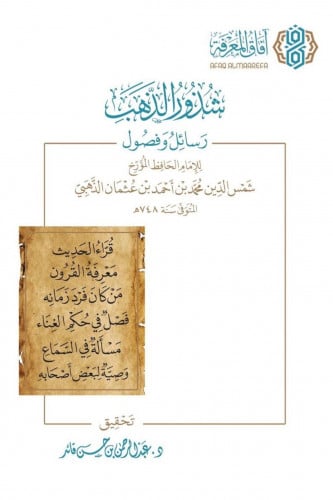 آفاق المعرفة
AFAQ ALMAAREFA
شذور الذهب
رسائل وفصول
للإمام الحافظ المؤرخ
شمس الدين محمد بن أحمد بن عثمان الذهبي
المتوفى سنة ٧٤٨هـ
قراء الحديث
معرفة القرون
من كان فرد زمانه
فصل في حكم الغناء
مسألة في السماع
وصية لبعض أصحابه
تحقيق
د. عبد الرحمن بن حسن قائد